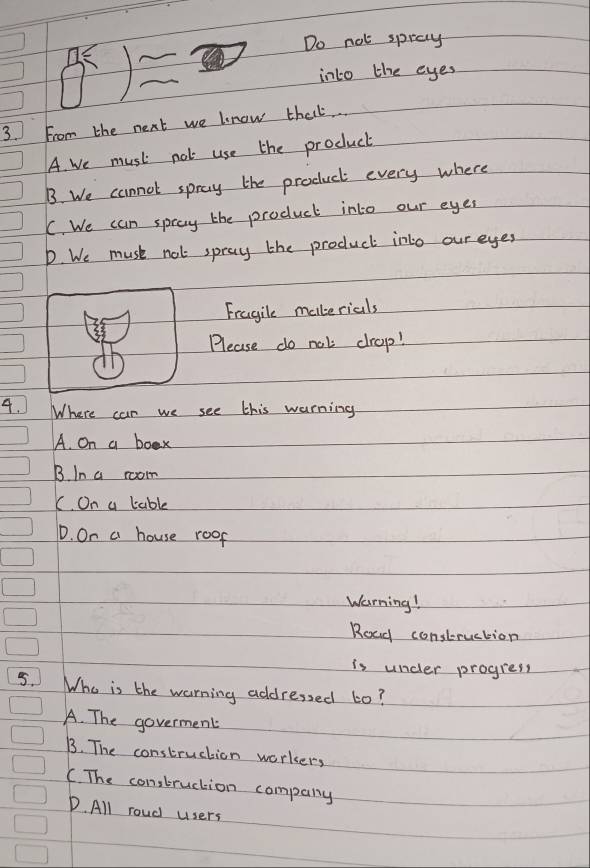 Do not spray
into the eyes
3. From the next we know that...
A. We must not use the product
B. We cannot spray the product every where
C. We can spray the product into our eyes
D. We must not spray the product into our eyes
Fragile materials
Please do not drop!
4. Where can we see this warning
A. On a boex
B. In a room
C. On a table
D. On a house roof
Warning!
Road construction
is under progress
5. Who is the warning addressed to?
A. The goverment
B. The construction workers
C. The construction company
D. All road users